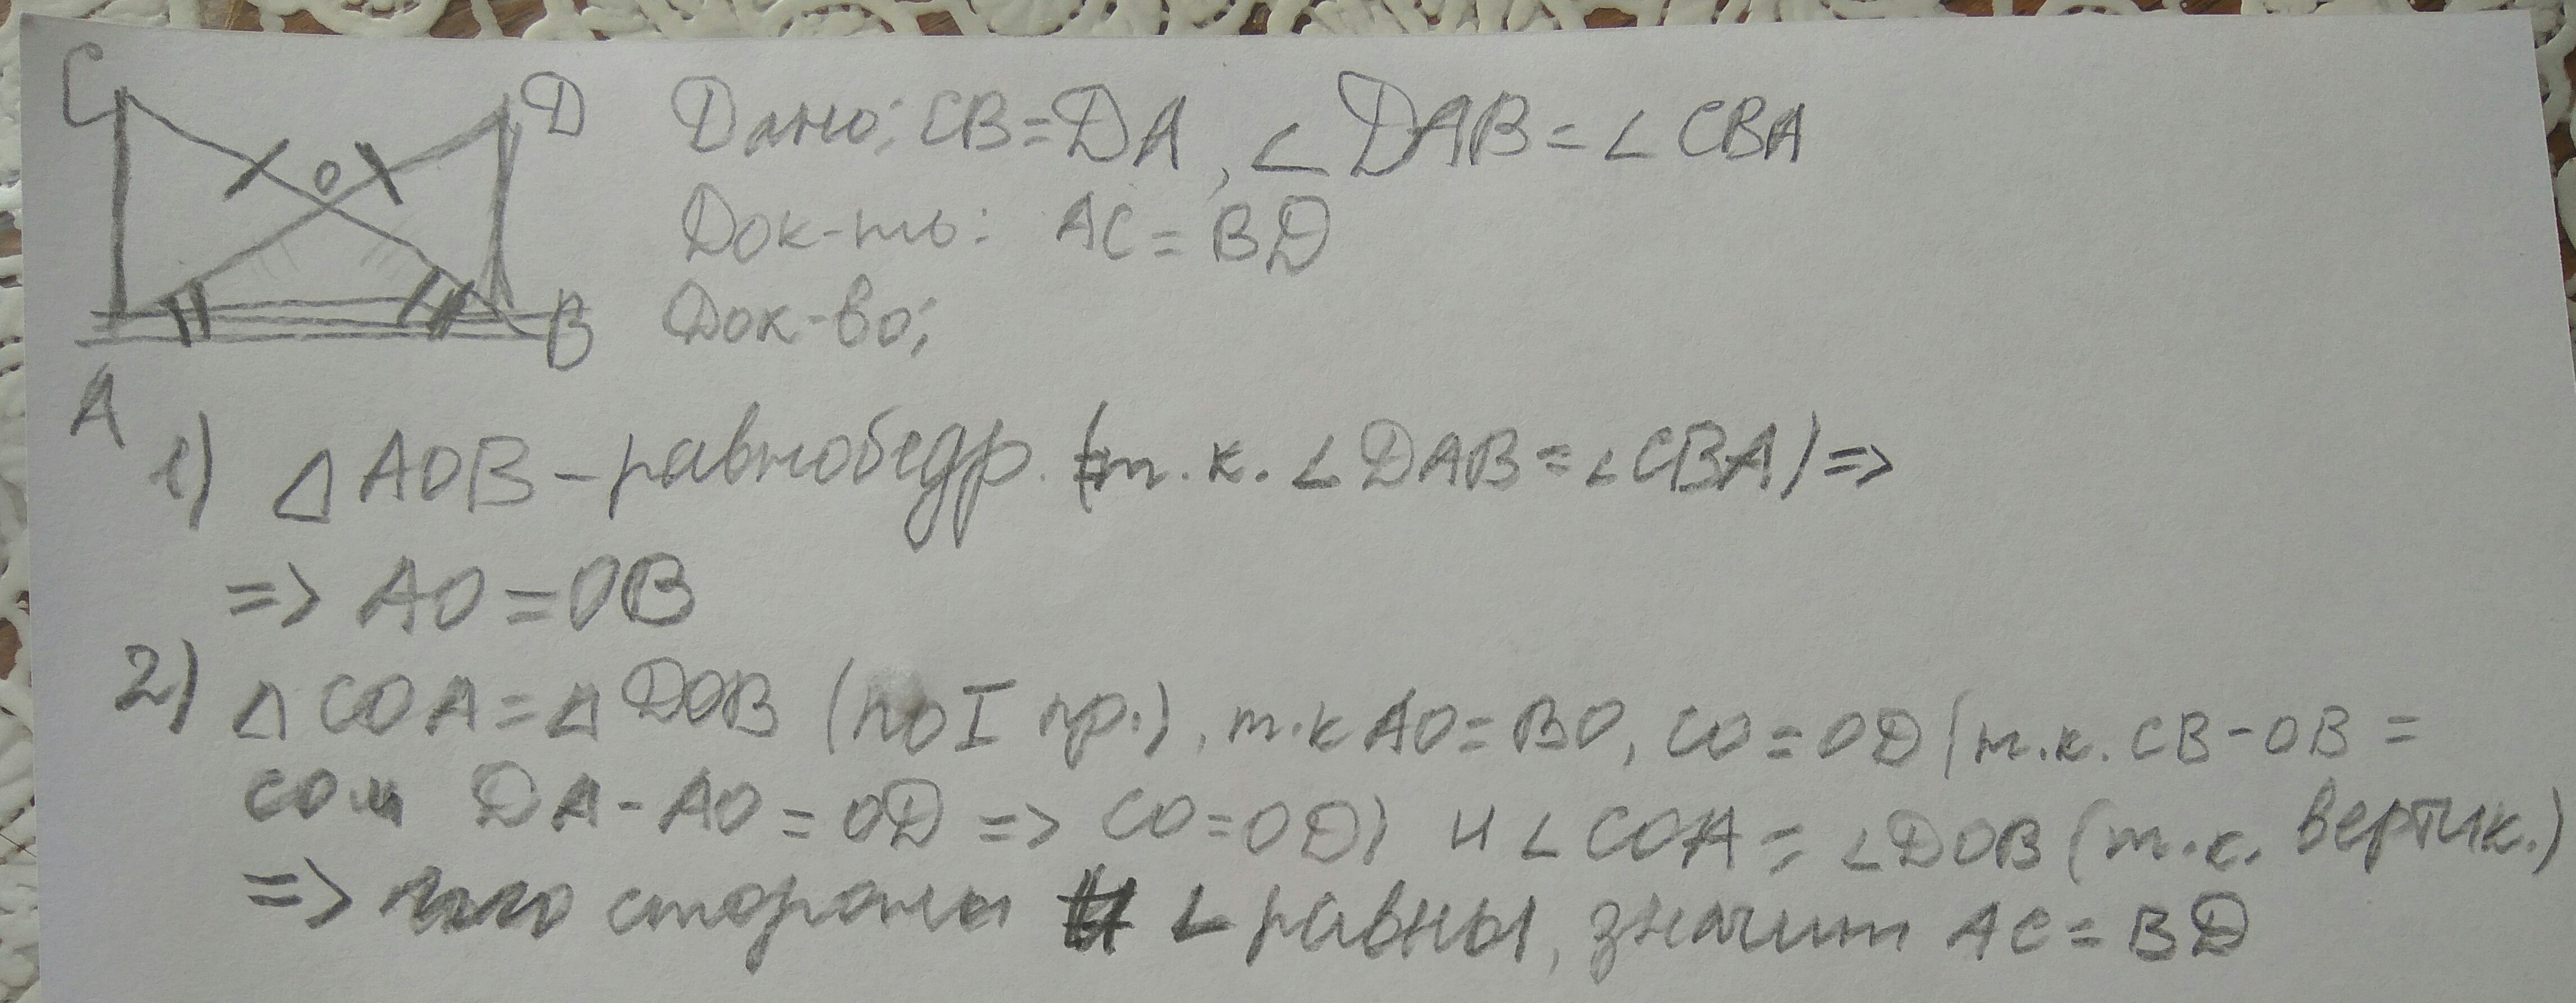 C D Дано: CB = DA, ∠DAB = ∠CBA
O
Док-ть: AC = BD
B Док-во:
A
1) △AOB - равнобедр. (т.к. ∠DAB = ∠CBA) =>
=> AO = OB
2) △COA = △DOB (по I пр.), т.к AO = BO, CO = OD (т.к. CB - OB =
DA - AO = OD => CO = OD) и ∠COA = ∠DOB (т.к. вертик.)
=> стороны ∠ равны, значит AC = BD